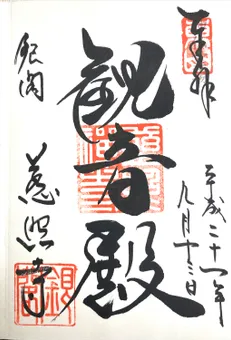 奉拝
平成二十一年
九月十三日
観音殿
銀閣
慈照寺